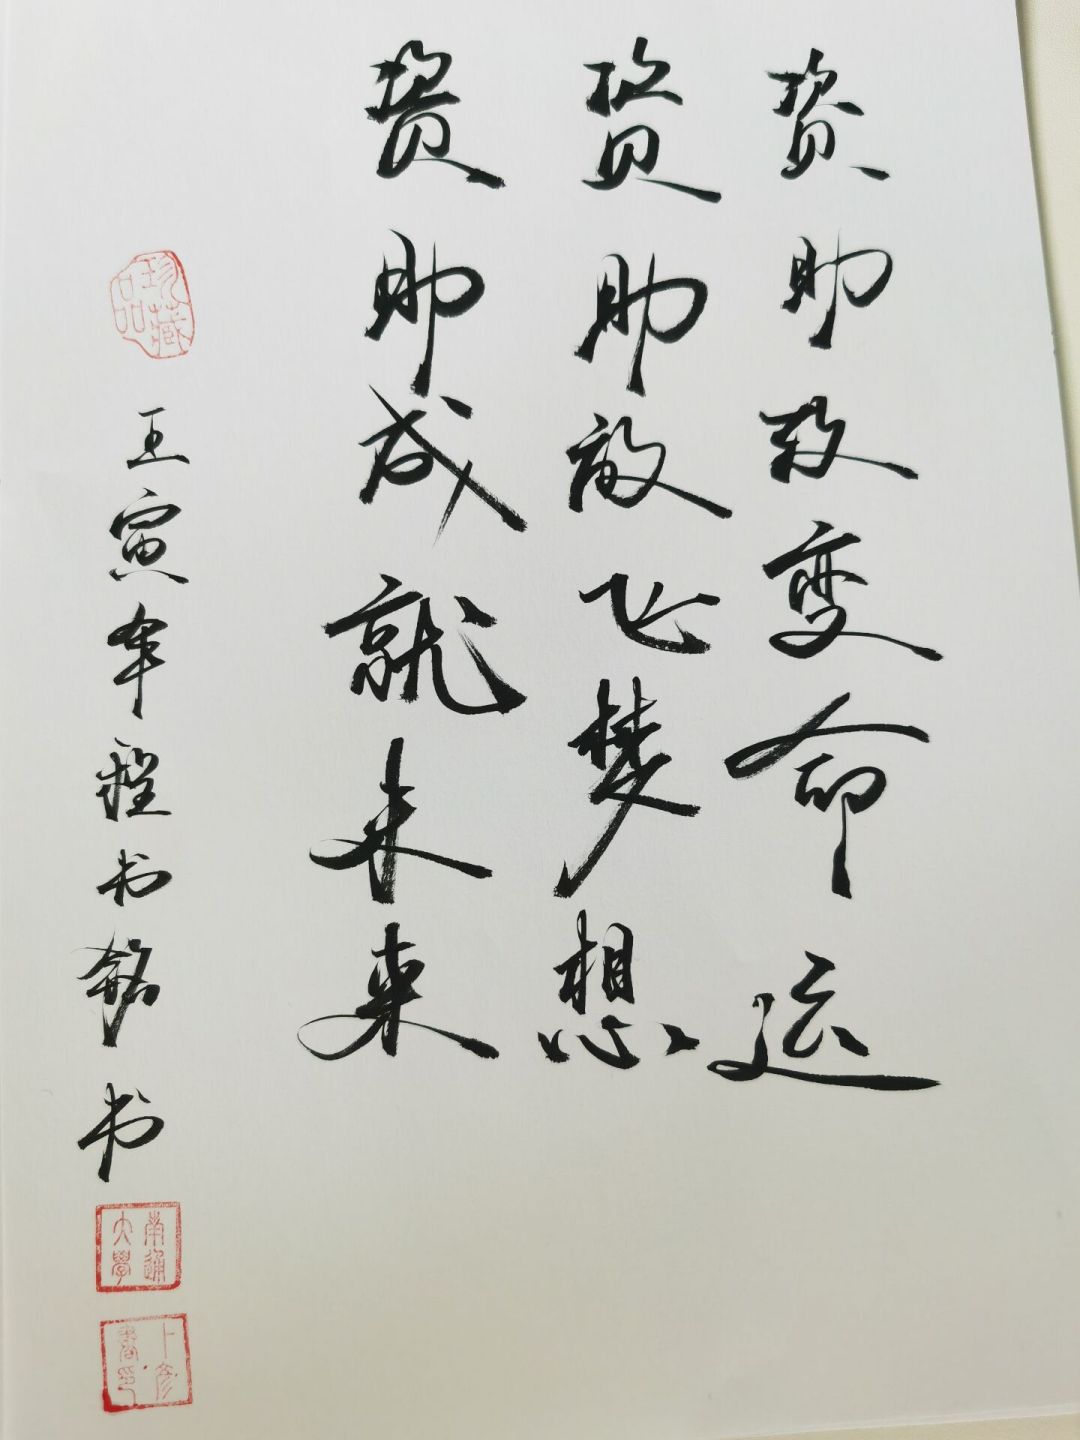 资助改变命运
资助放飞梦想
资助成就未来
珍藏品
壬寅年程书铭书
南通大學